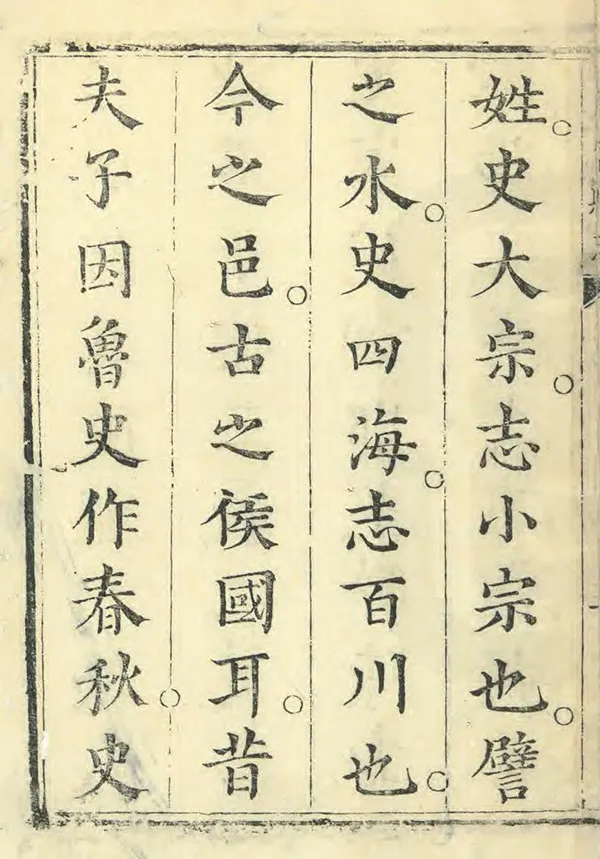 姓。史大宗。志小宗也。譬
之水。史四海。志百川也。
今之邑。古之侯國耳。昔
夫子因魯史作春秋。史